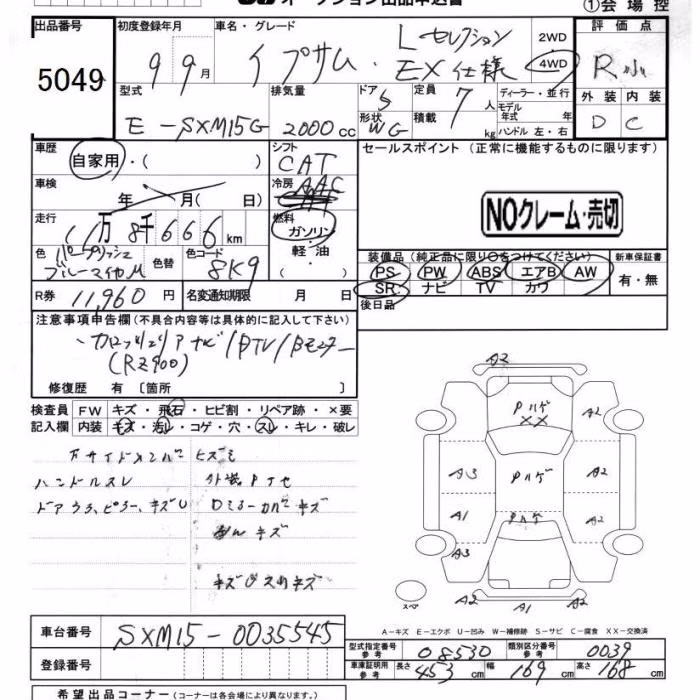 オークション出品申込書 ①会場控
出品番号 5049
初度登録年月 9年 9月
車名・グレード イプサム・Lセレクション EX仕様
2WD 4WD
評価点 R
外装 D 内装 C
型式 E-SXM15G
排気量 2000cc
ドア 5
形状 WG
定員 7人
積載 kg
ディーラー・並行
モデル年式 年
ハンドル 左・右
車歴 自家用・( )
シフト CAT
冷房 AAC
セールスポイント (正常に機能するものに限ります)
車検 年 月( 日)
NOクレーム・売切
走行 11万8千666km
燃料 ガソリン・軽油・( )
色 パープリッシュブルーマイカM
色替
色コード 8K9
装備品(純正品に限り○をつけてください)
新車保証書 有・無
PS PW ABS エアB AW
SR ナビ TV カワ
R券 11,960円
名変通知期限 月 日
後日品
注意事項申告欄(不具合内容等は具体的に記入して下さい)
(RZ900)
修復歴 有〔箇所 〕
検査員記入欄
FW キズ・飛石・ヒビ割・リペア跡・×要
内装 キズ・汚レ・コゲ・穴・スレ・キレ・破レ
ハンドルスレ
A2
Pハゲ
XX
A2
A3 Pハゲ A2
A1 Pハゲ A2
A3
スペア A2 A1 A2
A-キズ E-エクボ U-凹み W-補修跡 S-サビ C-腐食 XX-交換済
車台番号 SXM15-0035545
型式指定番号 参考 08530
類別区分番号 参考 0039
登録番号
車庫証明用 参考 長さ 453cm 幅 169cm 高さ 168cm
希望出品コーナー(コーナーは各会場により異なります。)